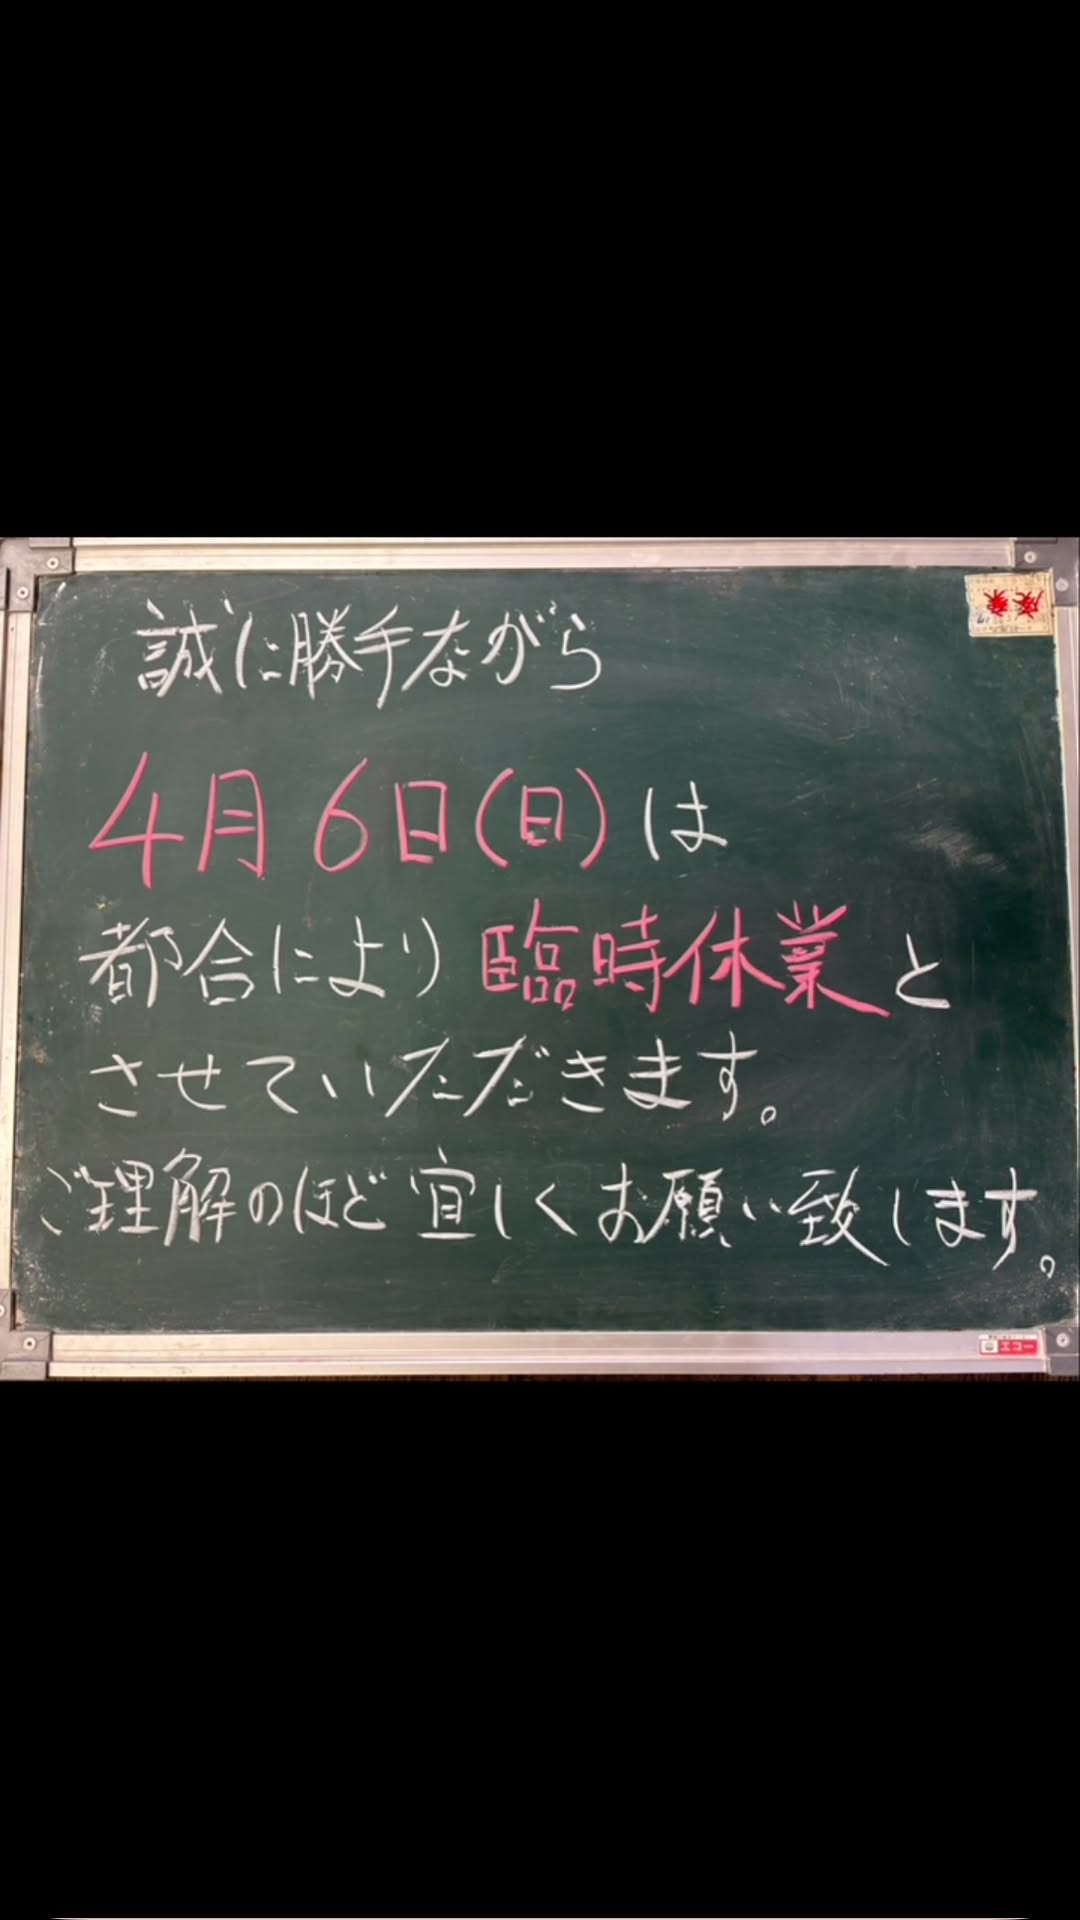 誠に勝手ながら
4月6日(日)は
都合により臨時休業と
させていただきます。
ご理解のほど宜しくお願い致します。
エコー